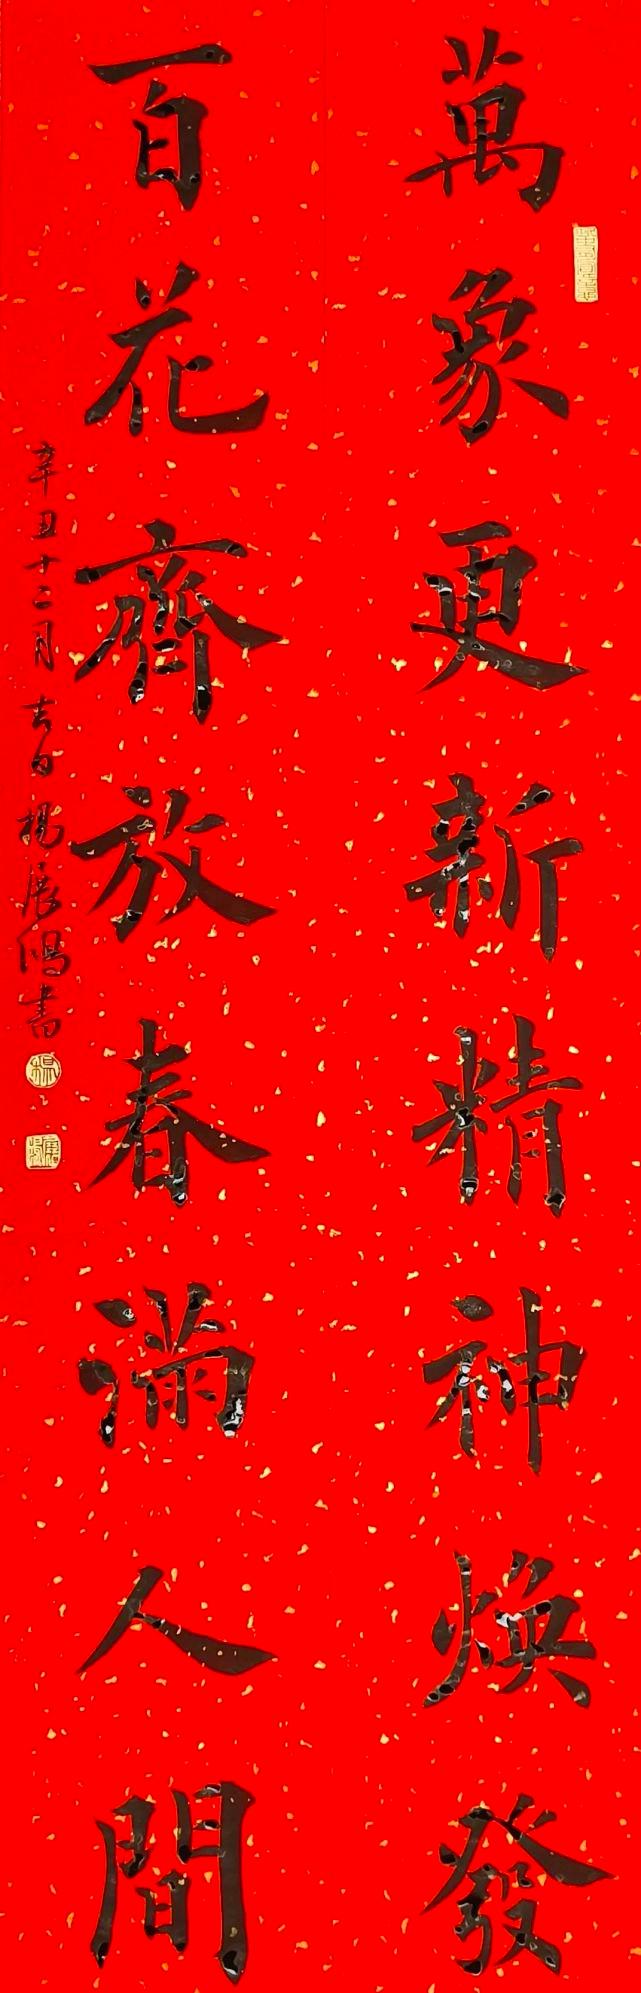 萬象更新精神煥發
百花齊放春滿人間
辛丑十二月吉日楊展鴻書